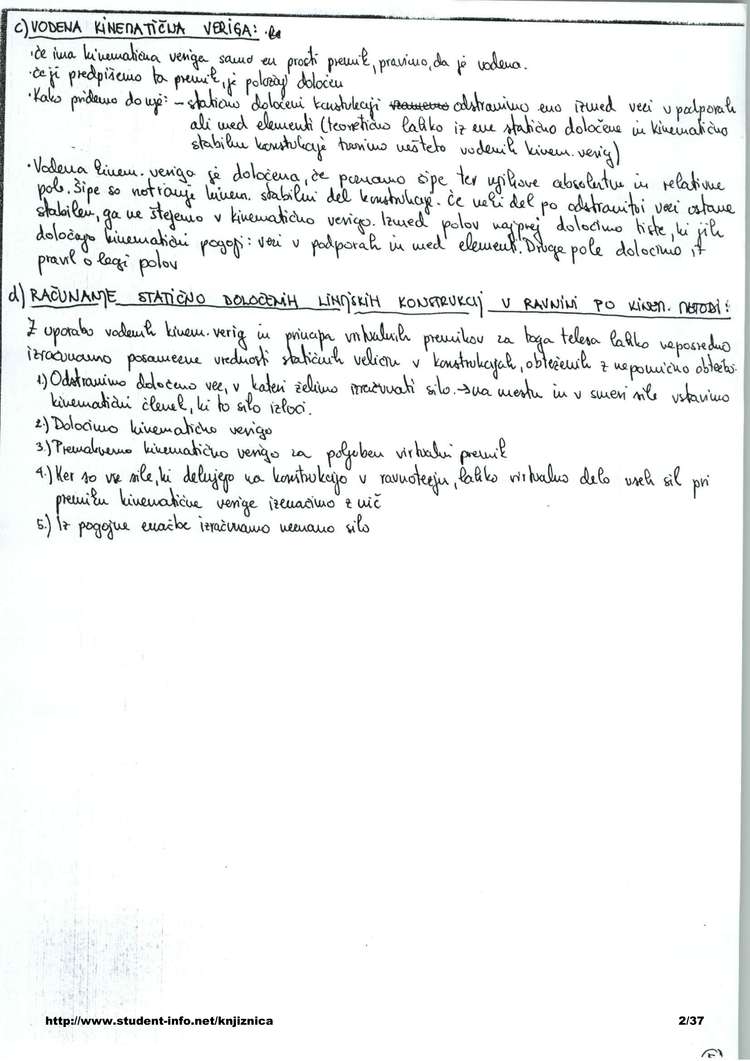 c) VODENA KINEMATIČNA VERIGA:
· če ima kinematična veriga samo en prosti premik, pravimo, da je vodena.
· če ji predpišemo ta premik, je položaj določen
· Kako pridemo do nje: – statično določeni konstrukciji odstranimo eno izmed vezi v podporah
ali med elementi (teoretično lahko iz ene statično določene in kinematično
stabilne konstrukcije tvorimo nešteto vodenih kinem. verig)
· Vodena kinem. veriga je določena, če poznamo šipe ter njihove absolutne in relativne
pole. Šipe so notranje kinem. stabilni del konstrukcije. Če neki del po odstranitvi vezi ostane
stabilen, ga ne štejemo v kinematično verigo. Izmed polov najprej določimo tiste, ki jih
določajo kinematični pogoji: vezi v podporah in med elementi. Druge pole določimo iz
pravil o legi polov
d) RAČUNANJE STATIČNO DOLOČENIH LINIJSKIH KONSTRUKCIJ V RAVNINI PO KINEM. METODI:
Z uporabo vodenih kinem. verig in principa virtualnih premikov za toga telesa lahko neposredno
izračunamo posamezne vrednosti statičnih veličin v konstrukcijah, obteženih z nepomično obtežbo.
1.) Odstranimo določeno vez, v kateri želimo izračunati silo. → na mestu in v smeri sile vstavimo
kinematični členek, ki to silo izloči.
2.) Določimo kinematično verigo
3.) Premaknemo kinematično verigo za poljuben virtualni premik
4.) Ker so vse sile, ki delujejo na konstrukcijo v ravnotežju, lahko virtualno delo vseh sil pri
premiku kinematične verige izenačimo z nič
5.) Iz pogojne enačbe izračunamo neznano silo
http://www.student-info.net/knjiznica
2/37